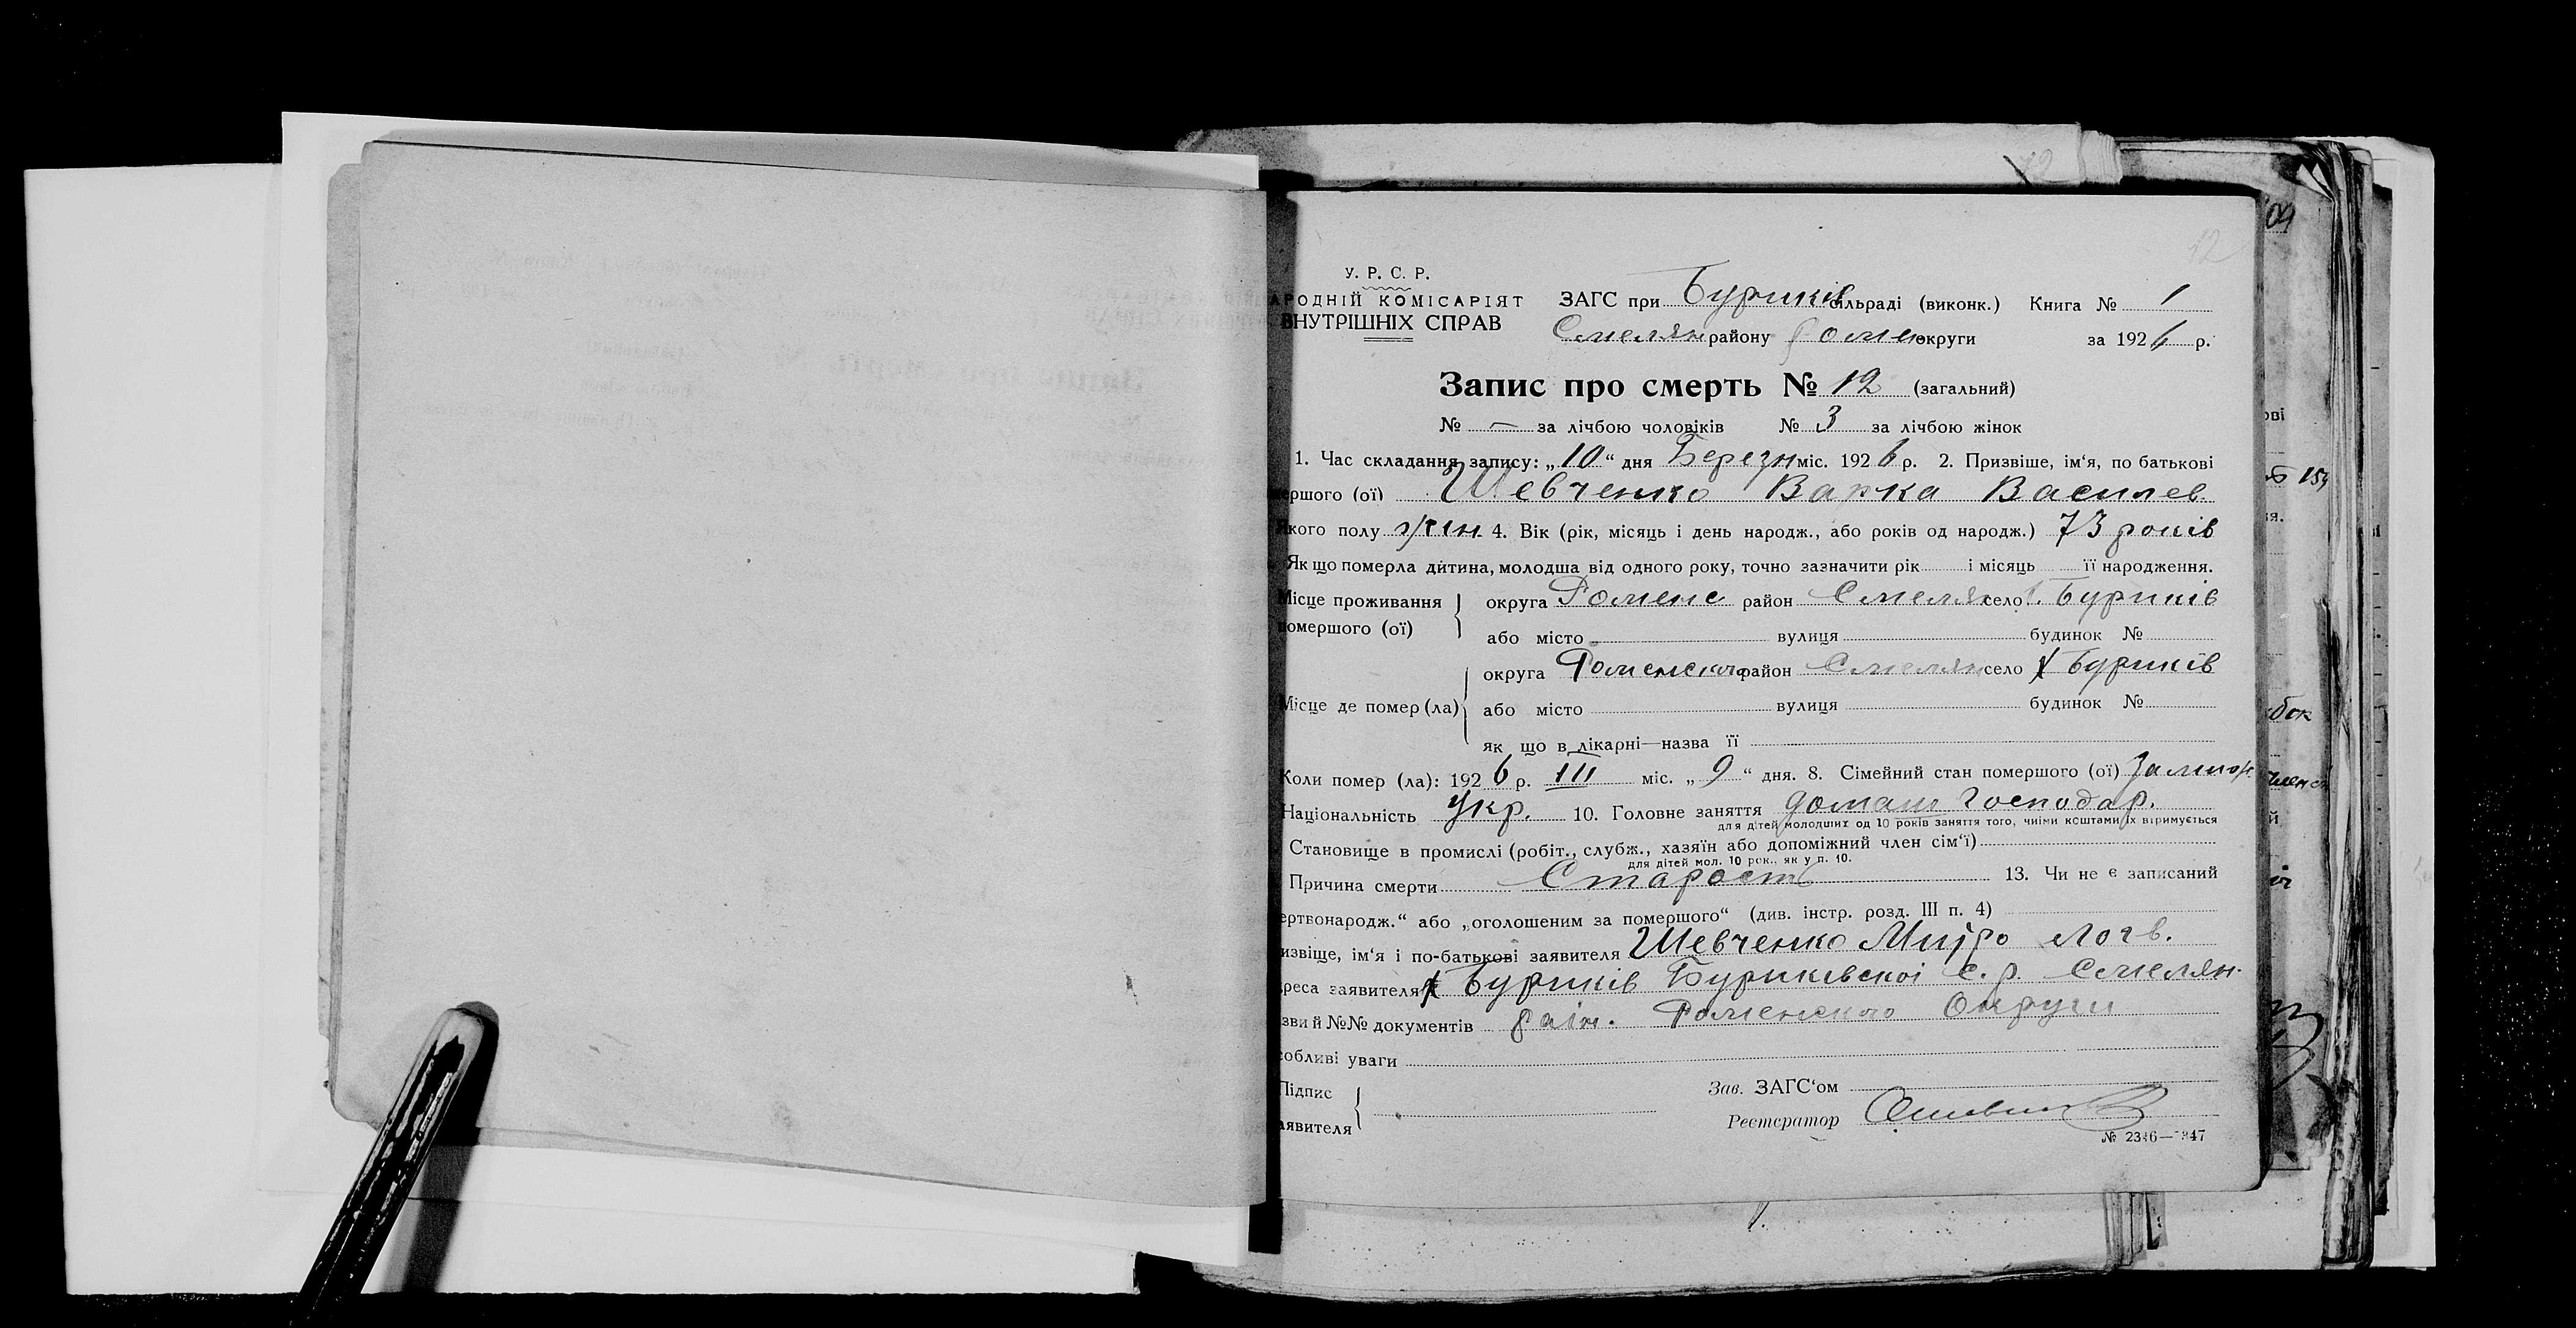 У. Р. С. Р.
АРОДНІЙ КОМІСАРІЯТ
ВНУТРІШНІХ СПРАВ
ЗАГС при Буриків сільраді (виконк.) Книга № 1
Смелян району Ромен округи за 1926 р.
12
Запис про смерть № 12 (загальний)
№ — за лічбою чоловіків № 3 за лічбою жінок
1. Час складання запису: „10“ дня Березн міс. 1926 р. 2. Призвіше, ім‘я, по батькові
ершого (ої) Шевченко Варка Василев
Якого полу жін. 4. Вік (рік, місяць і день народж., або років од народж.) 73 років
Як що померла дитина, молодша від одного року, точно зазначити рік і місяць її народження.
Місце проживання
помершого (ої)
округа Роменс район Смелян село Буриків
або місто вулиця будинок №
Місце де помер (ла)
округа Роменська район Смелян село х Буриків
або місто вулиця будинок №
як що в лікарні—назва її
Коли помер (ла): 1926 р. III міс. „9“ дня. 8. Сімейний стан помершого (ої) Замуж.
Національність Укр. 10. Головне заняття домаш господар.
для дітей молодших од 10 років заняття того, чиїми коштами їх втримується
Становище в промислі (робіт., служб., хазяїн або допоміжний член сім‘ї)
для дітей мол. 10 рок., як у п. 10.
Причина смерти Старость 13. Чи не є записаний
ертвонародж.“ або „оголошеним за помершого“ (див. інстр. розд. III п. 4)
извіще, ім‘я і по-батькові заявителя Шевченко Логв.
дреса заявителя х Буриків Буриківської с. р. Смелян.
зви й №№ документів раін. Роменского Округи
собливі уваги
Підпис
аявителя
Зав. ЗАГС‘ом
Реєстратор